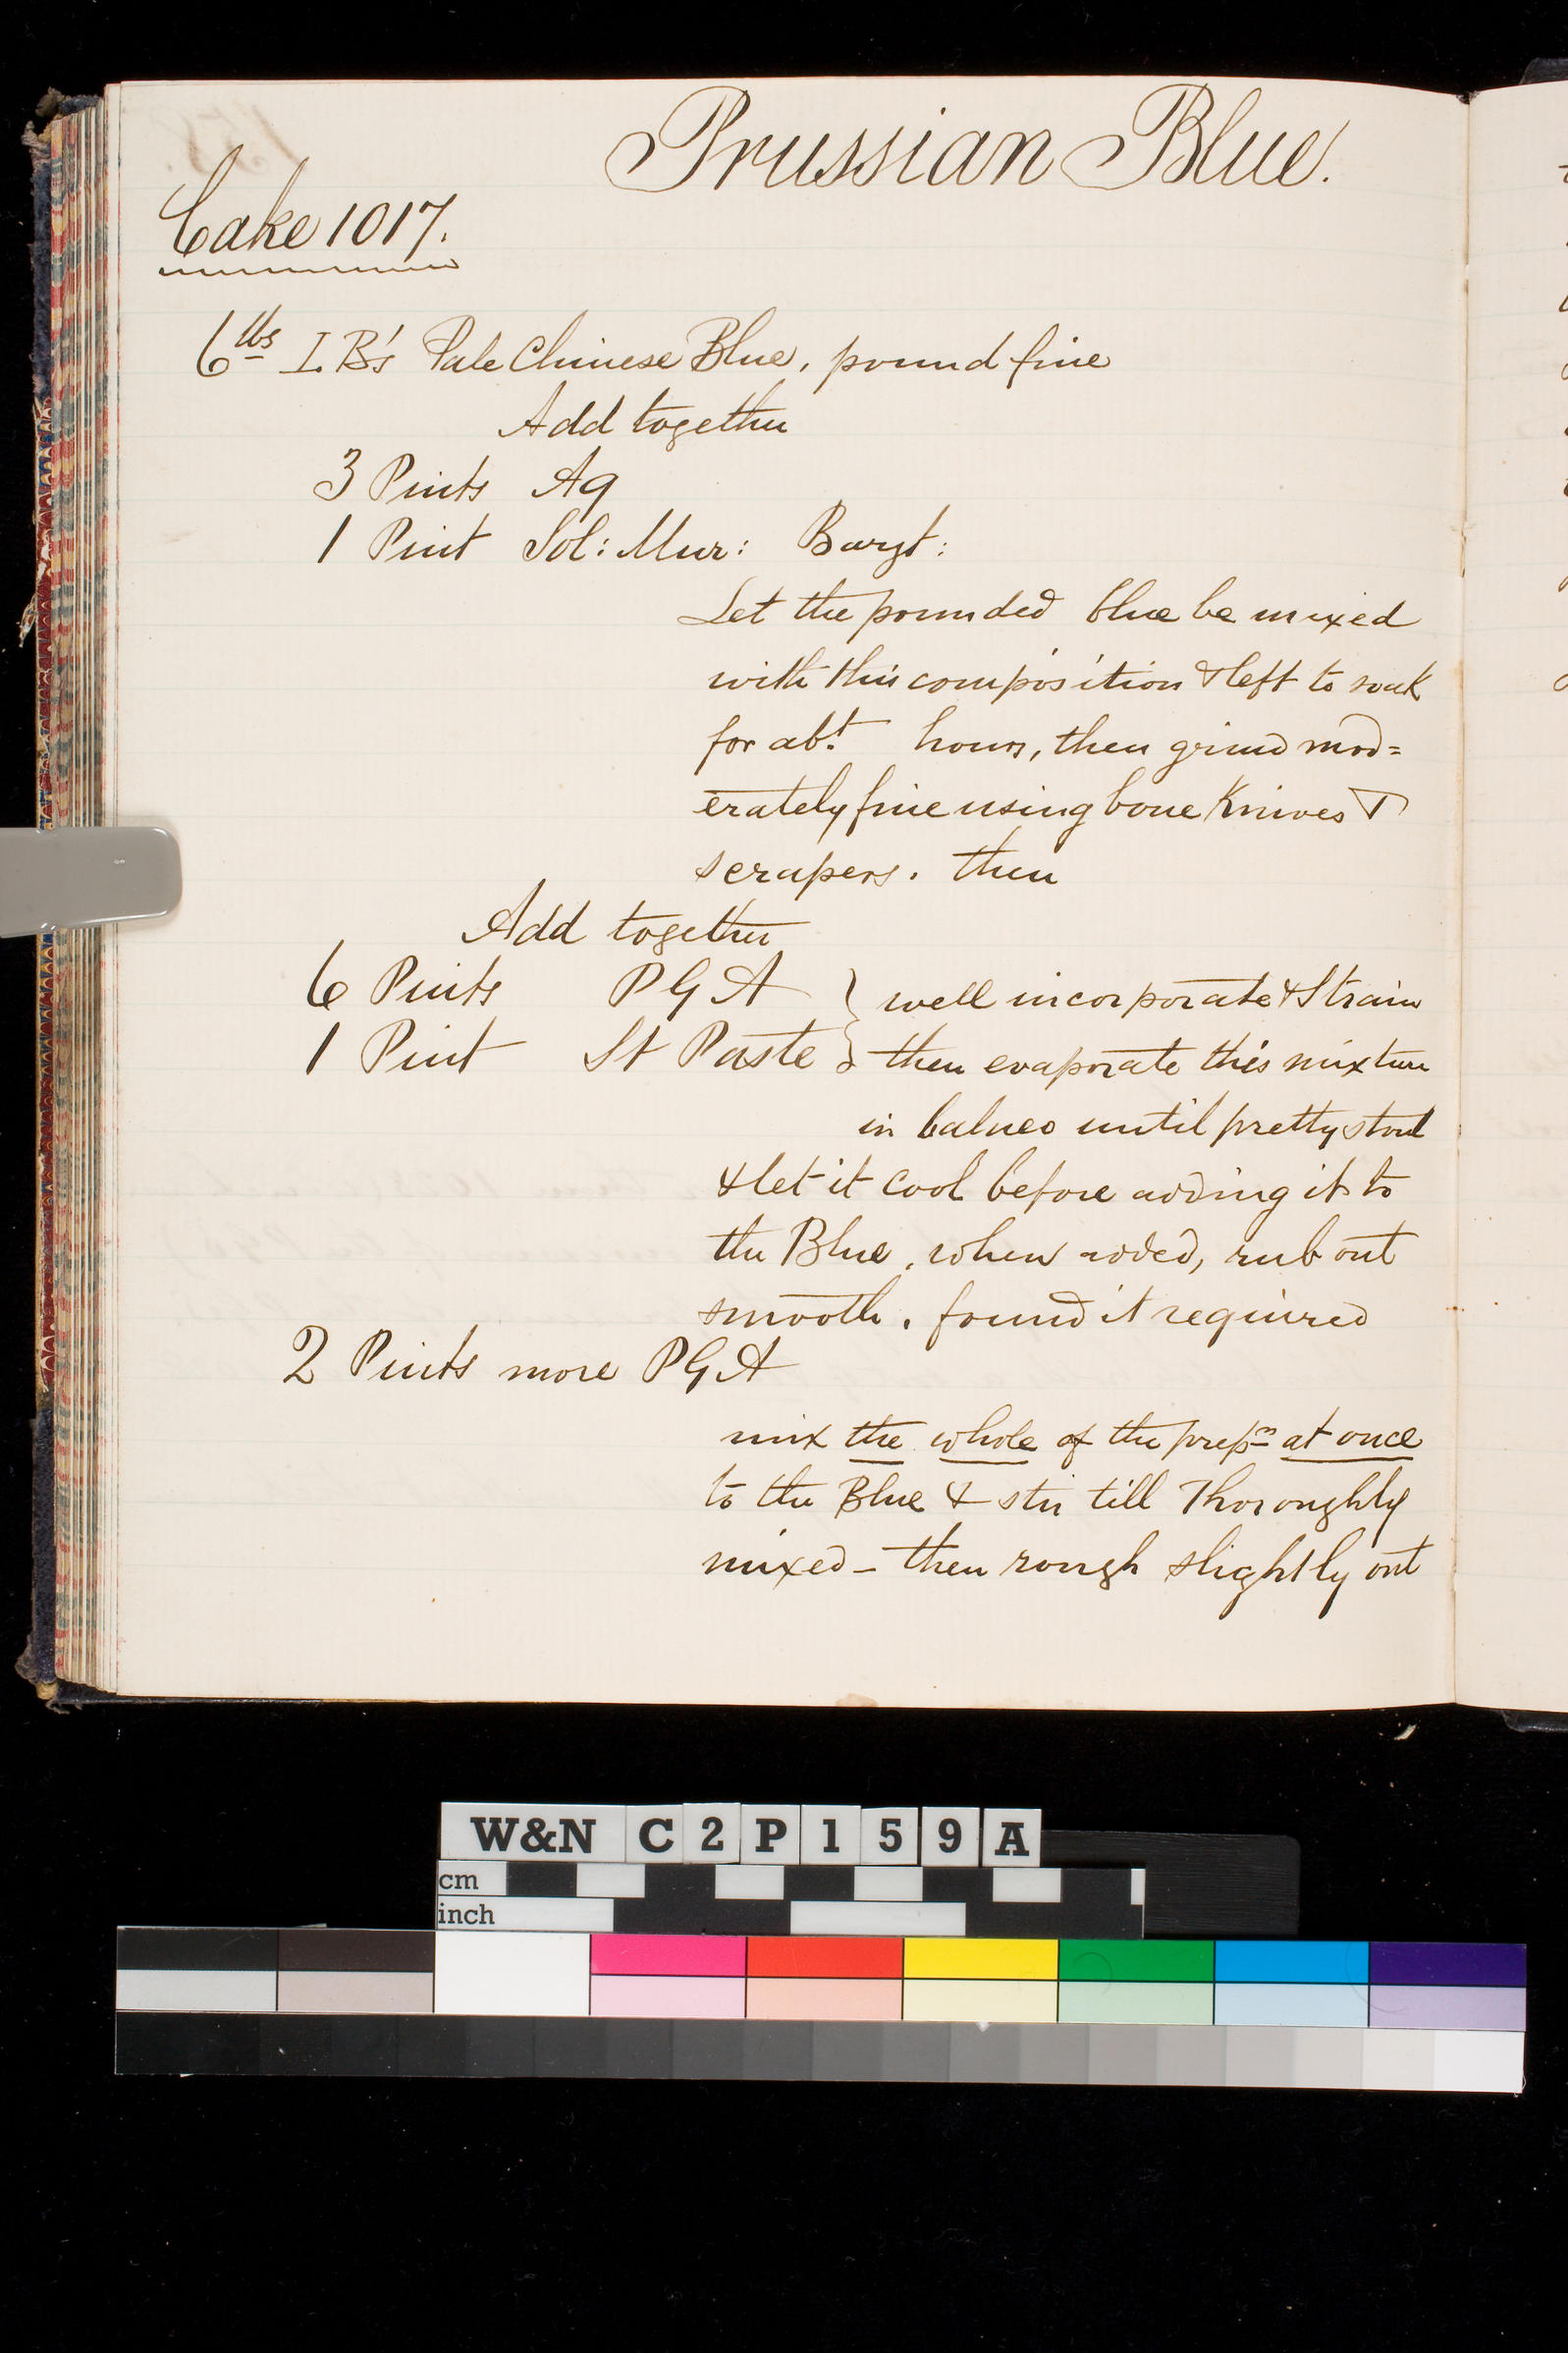 Prussian Blue.
Cake 1017.
6 lbs I. B's Pale Chinese Blue, pound fine
Add together
3 Pints Aq
1 Pint Sol: Mur: Baryt:
Let the pounded blue be mixed
with this composition & left to soak
for abt. hours, then grind mod=
erately fine using bone Knives &
scrapers. then
Add together
6 Pints P G A } well incorporate & Strain
1 Pint St Paste } then evaporate this mixture
in balneo until pretty stout
& let it cool before adding it to
the Blue, when added, rub out
smooth. found it required
2 Pints more P G A
mix the whole of the prepn at once
to the Blue & stir till Thoroughly
mixed – then rough slightly out
W&N C2P159A
cm
inch